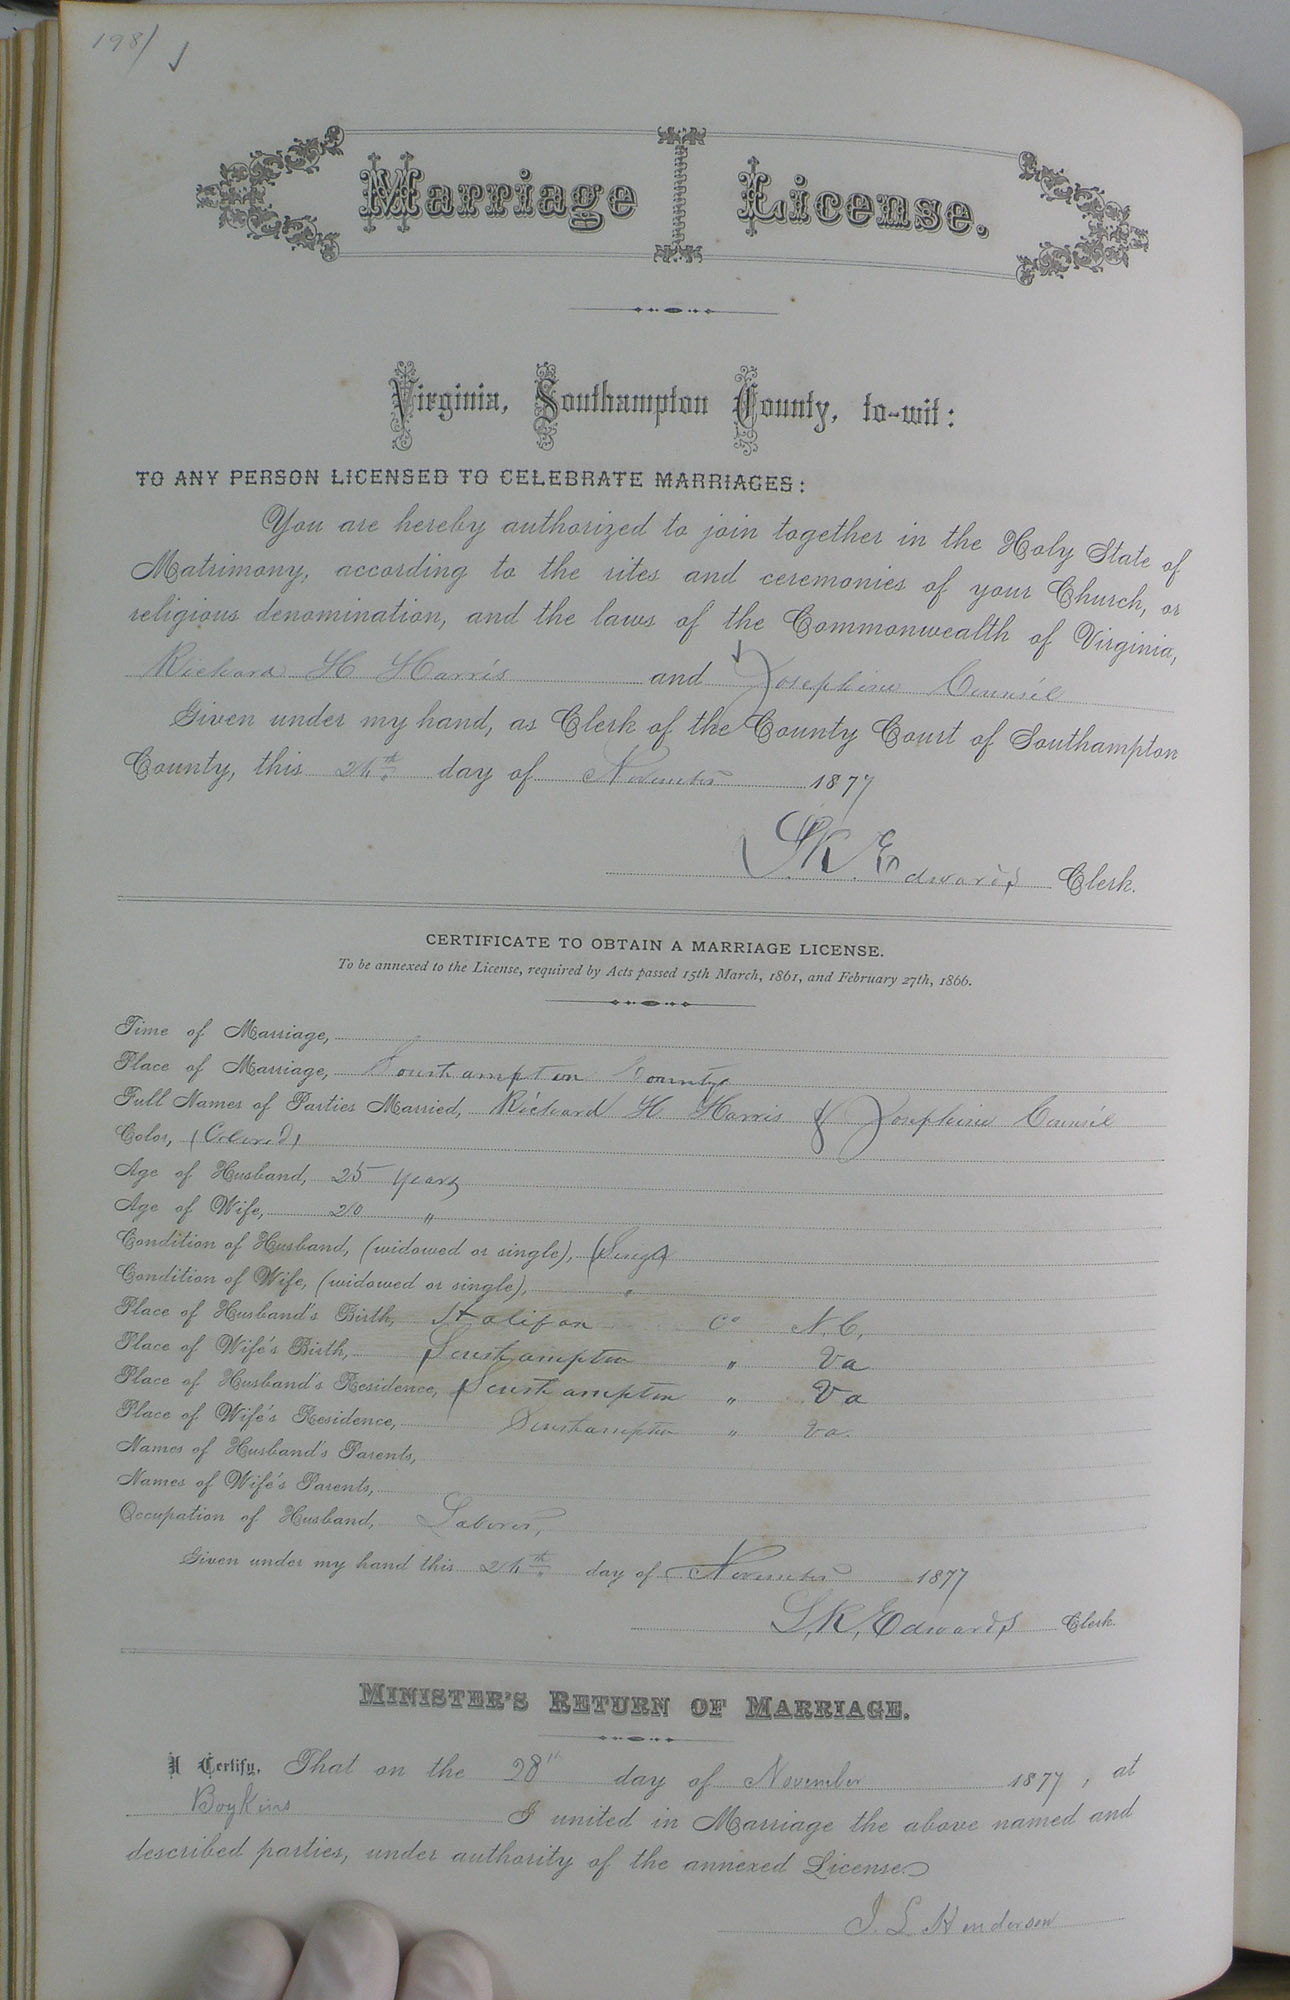 198/
Marriage License.
Virginia, Southampton County, to-wit:
TO ANY PERSON LICENSED TO CELEBRATE MARRIAGES:
You are hereby authorized to join together in the Holy State of
Matrimony, according to the rites and ceremonies of your Church, or
religious denomination, and the laws of the Commonwealth of Virginia,
Richard H Harris and Josephine Counsil
Given under my hand, as Clerk of the County Court of Southampton
County, this th day of November 1877
S. K. Edwards Clerk.
CERTIFICATE TO OBTAIN A MARRIAGE LICENSE.
To be annexed to the License, required by Acts passed 15th March, 1861, and February 27th, 1866.
Time of Marriage,
Place of Marriage, Southampton County
Full Names of Parties Married, Richard H Harris & Josephine Counsil
Color, (Colored)
Age of Husband, 25 years
Age of Wife, 20 "
Condition of Husband, (widowed or single), Single
Condition of Wife, (widowed or single), "
Place of Husband's Birth, Halifax Co N.C.
Place of Wife's Birth, Southampton " Va
Place of Husband's Residence, Southampton " Va
Place of Wife's Residence, Southampton " Va.
Names of Husband's Parents,
Names of Wife's Parents,
Occupation of Husband, Laborer,
Given under my hand this th day of November 1877
S. K. Edwards Clerk.
MINISTER'S RETURN OF MARRIAGE.
I Certify, That on the 28th day of November 1877, at
Boykins I united in Marriage the above named and
described parties, under authority of the annexed License
J. L. Henderson